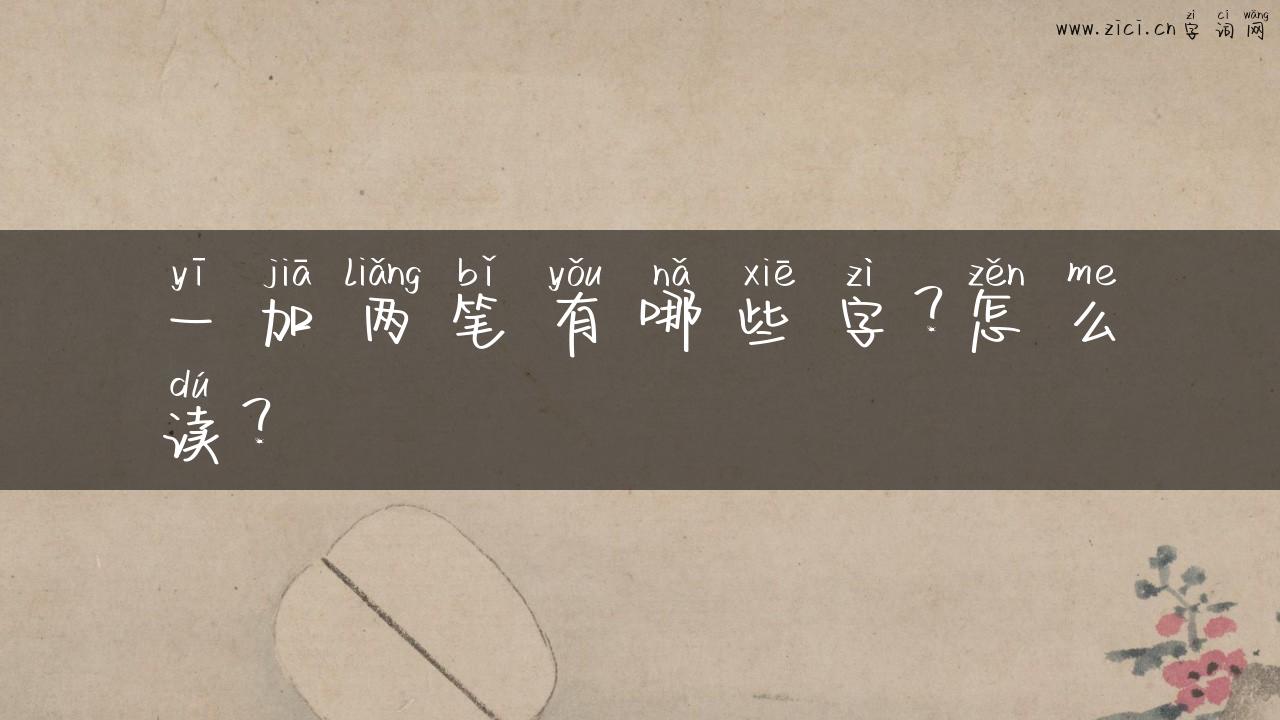 zì cí wǎng
www.zici.cn字词网
yī jiā liǎng bǐ yǒu nǎ xiē zì zěn me
一加两笔有哪些字？怎么
dú
读？